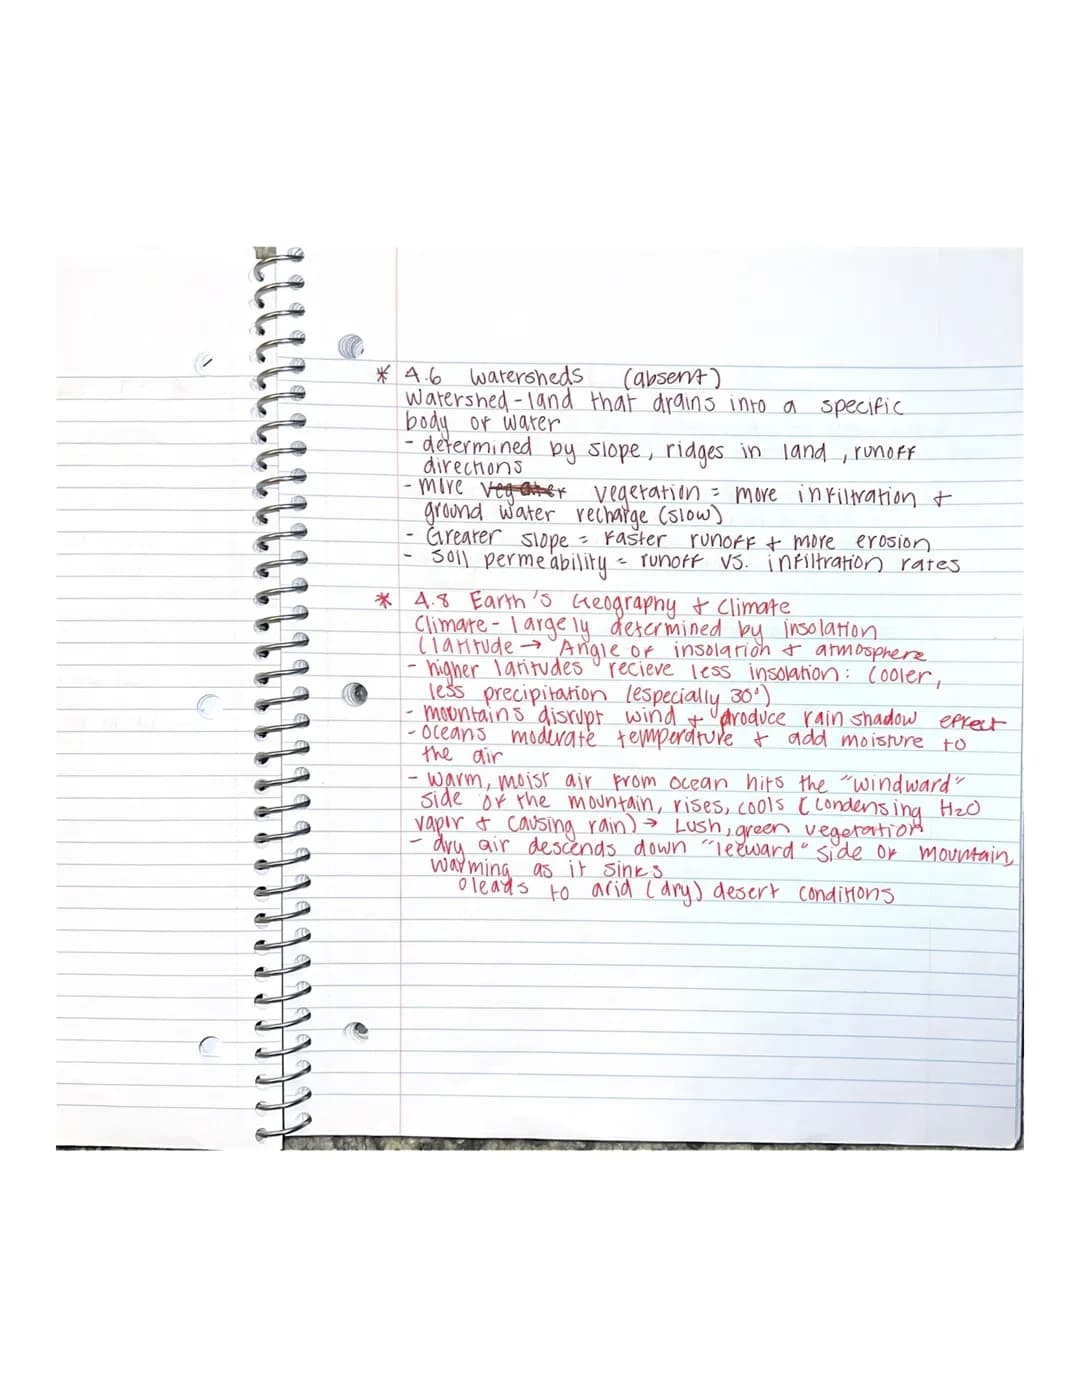 * 4.6 Watersheds (absent)
Watershed - land that drains into a specific
body of water
- determined by slope, ridges in land, runoff
directions
- more vegetation = more infiltration +
ground water recharge (slow)
- Greater slope = Faster runoff + more erosion
- Soil permeability = runoff vs. infiltration rates
* 4.8 Earth's Geography + Climate
Climate - largely determined by insolation
(latitude → Angle of insolation + atmosphere
- higher latitudes recieve less insolation: cooler,
less precipitation (especially 30°)
- mountains disrupt wind + produce rain shadow effect
- Oceans moderate temperature + add moisture to
the air
- Warm, moist air from ocean hits the "windward"
side of the mountain, rises, cools (condensing H2O
vapir + causing rain) → Lush, green vegetation
- dry air descends down "leeward" side of mountain
warming as it sinks
o leads to arid (dry) desert conditions